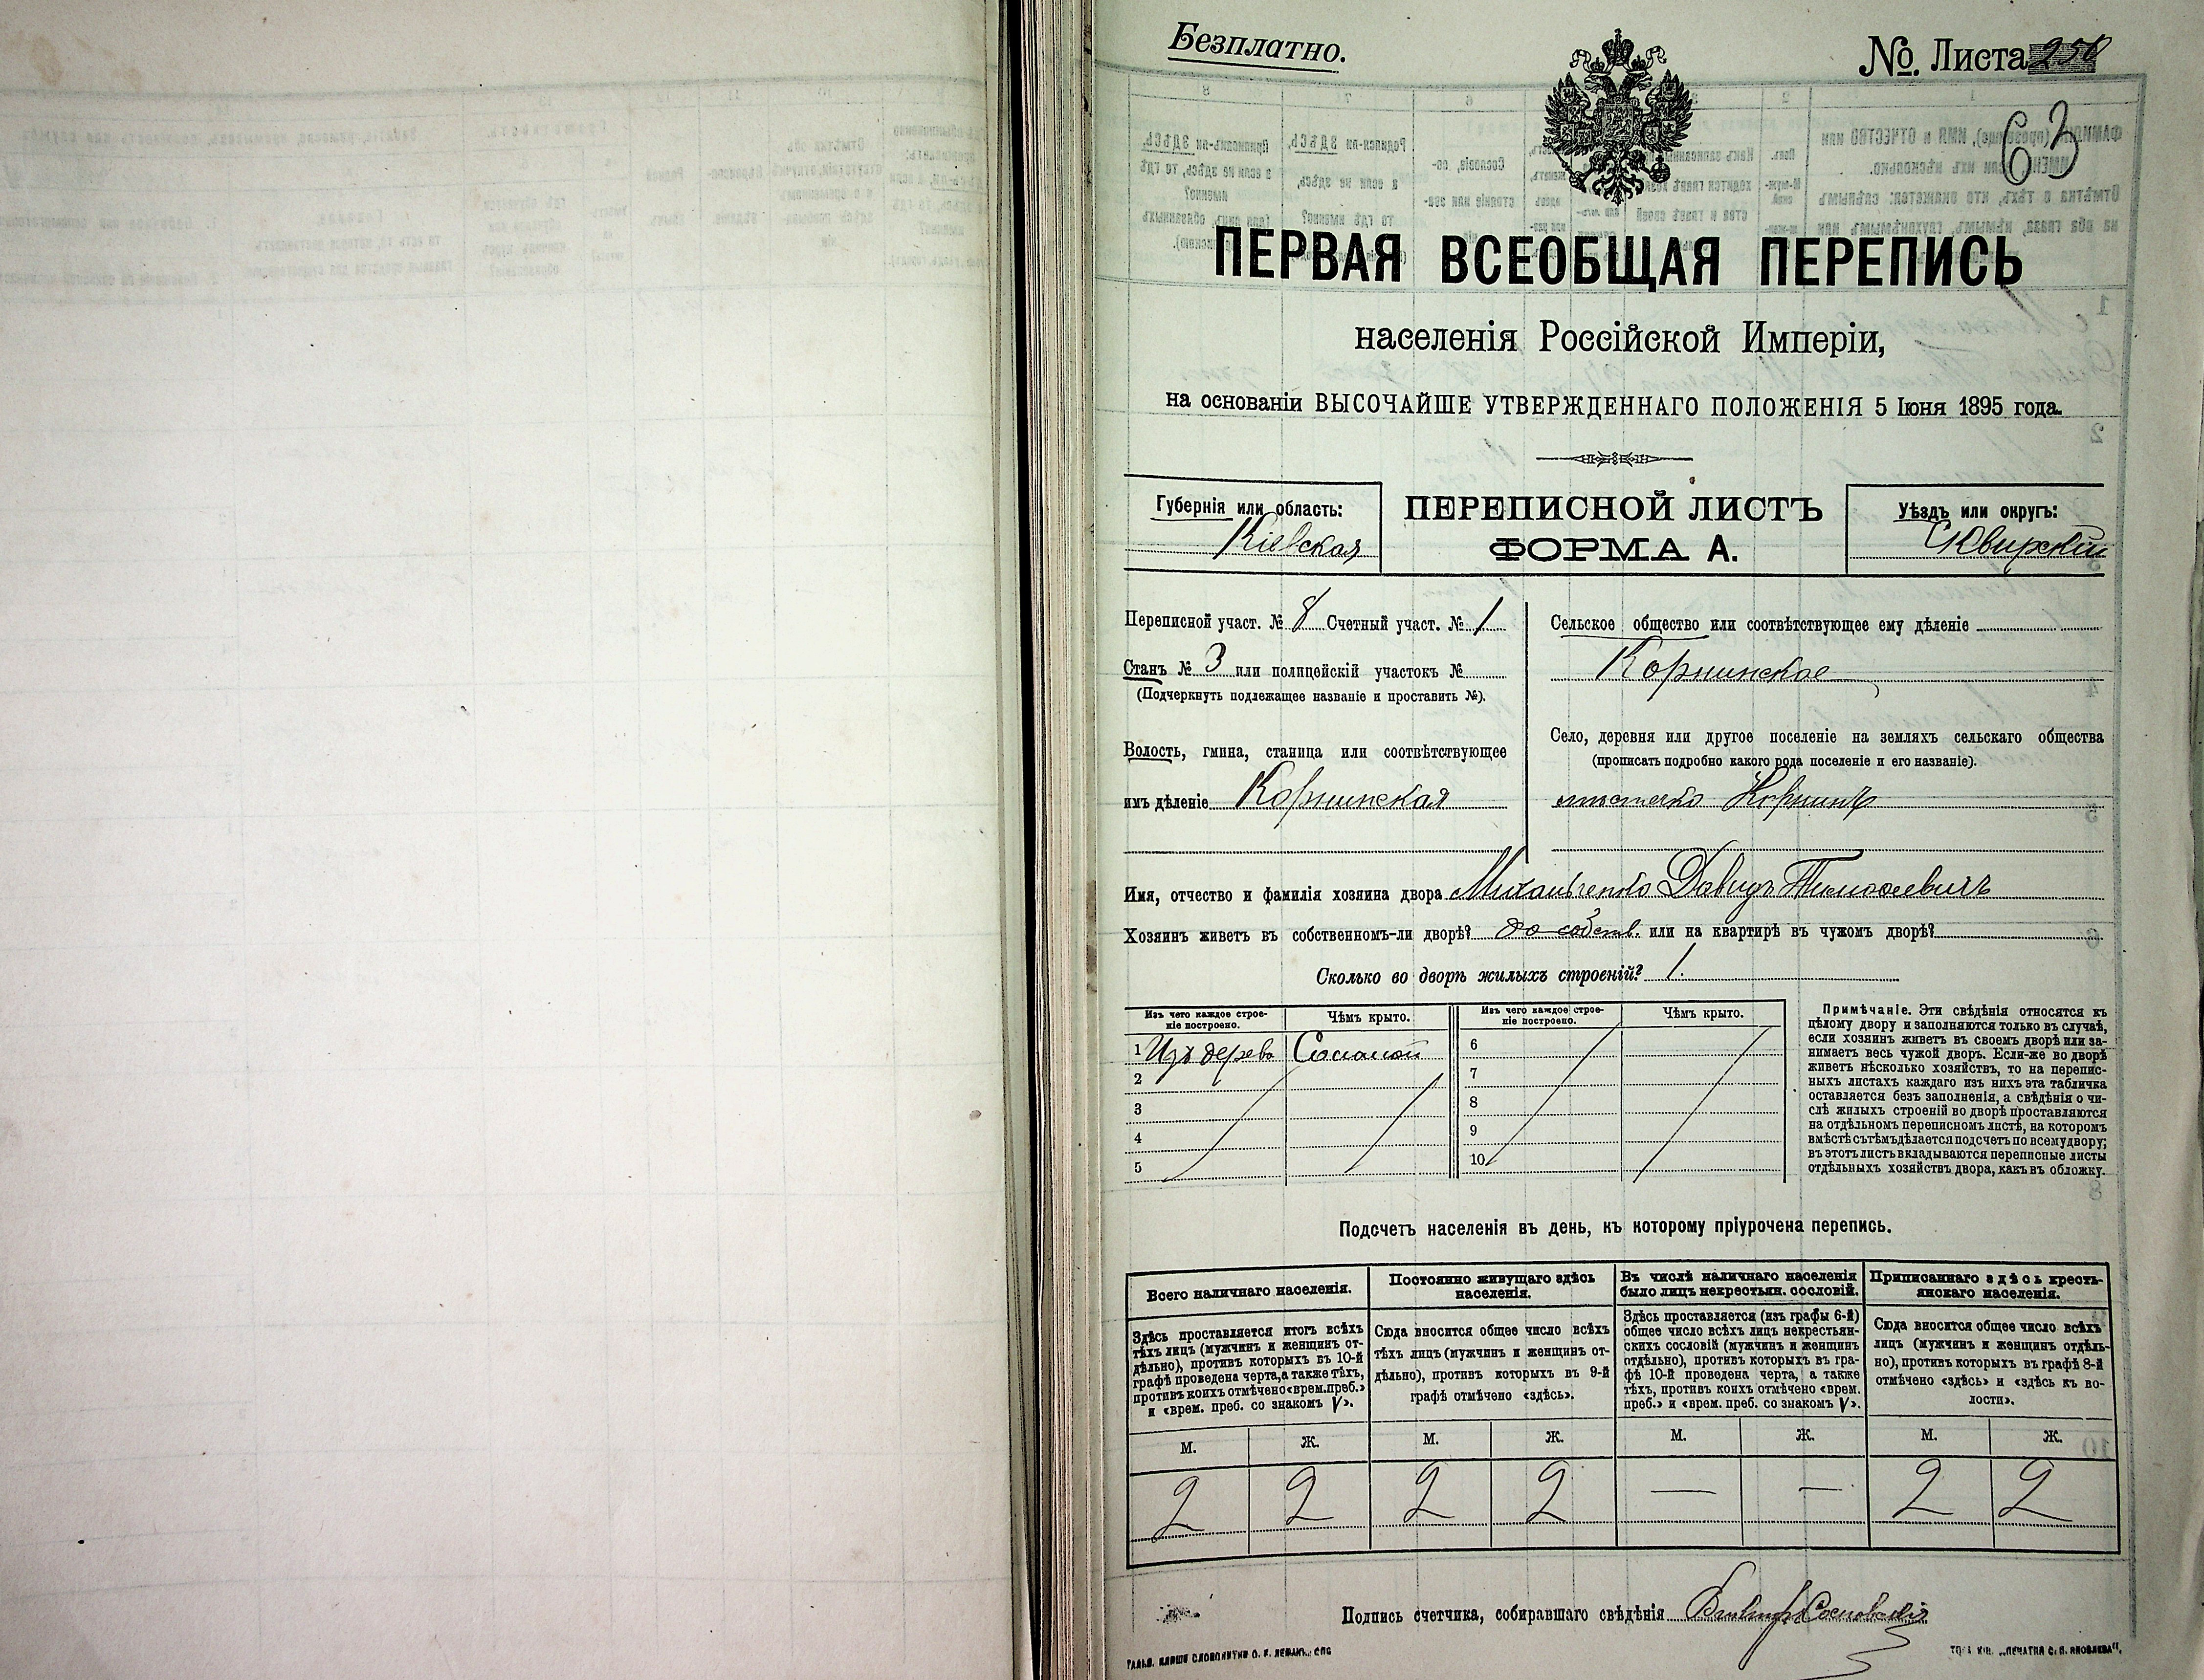 Безплатно.
№. Листа
63
ПЕРВАЯ ВСЕОБЩАЯ ПЕРЕПИСЬ
населенія Россійской Имперіи,
на основаніи ВЫСОЧАЙШЕ УТВЕРЖДЕННАГО ПОЛОЖЕНІЯ 5 Іюня 1895 года.
Губернія или область:
Кіевская
ПЕРЕПИСНОЙ ЛИСТЪ
ФОРМА А.
Уѣздъ или округъ:
Сквирскій
Переписной участ. № 8 Счетный участ. № 1
Станъ № 3 или полицейскій участокъ №
(Подчеркнуть подлежащее названіе и проставить №).
Волость, гмина, станица или соотвѣтствующее
имъ дѣленіе Корнинская
Сельское общество или соотвѣтствующее ему дѣленіе
Корнинское
Село, деревня или другое поселеніе на земляхъ сельскаго общества
(прописать подробно какого рода поселеніе и его названіе).
мѣстечко Корнинъ
Имя, отчество и фамилія хозяина двора Михальченко Давидъ Тимофеевичъ
Хозяинъ живетъ въ собственномъ-ли дворѣ? собств. или на квартирѣ въ чужомъ дворѣ?
Сколько во дворѣ жилыхъ строеній? 1.
Изъ чего каждое строе-
ніе построено.
Чѣмъ крыто.
Изъ чего каждое строе-
ніе построено.
Чѣмъ крыто.
1 Изъ дерева Соломой
2
3
4
5
6
7
8
9
10
Примѣчаніе. Эти свѣдѣнія относятся къ
цѣлому двору и заполняются только въ случаѣ,
если хозяинъ живетъ въ своемъ дворѣ или за-
нимаетъ весь чужой дворъ. Если-же во дворѣ
живетъ нѣсколько хозяйствъ, то на перепис-
ныхъ листахъ каждаго изъ нихъ эта табличка
оставляется безъ заполненія, а свѣдѣнія о чи-
слѣ жилыхъ строеній во дворѣ проставляются
на отдѣльномъ переписномъ листѣ, на которомъ
вмѣстѣ съ тѣмъ дѣлается подсчетъ по всему двору;
въ этотъ листъ вкладываются переписные листы
отдѣльныхъ хозяйствъ двора, какъ въ обложку.
Подсчетъ населенія въ день, къ которому пріурочена перепись.
Всего наличнаго населенія.
Здѣсь проставляется итогъ всѣхъ
тѣхъ лицъ (мужчинъ и женщинъ от-
дѣльно), противъ которыхъ въ 10-й
графѣ проведена черта, а также тѣхъ,
противъ коихъ отмѣчено «врем. преб.»
и «врем. преб. со знакомъ V».
Постоянно живущаго здѣсь
населенія.
Сюда вносится общее число всѣхъ
тѣхъ лицъ (мужчинъ и женщинъ от-
дѣльно), противъ которыхъ въ 9-й
графѣ отмѣчено «здѣсь».
Въ числѣ наличнаго населенія
было лицъ некрестьян. сословій.
Здѣсь проставляется (изъ графы 6-й)
общее число всѣхъ лицъ некрестьян-
скихъ сословій (мужчинъ и женщинъ
отдѣльно), противъ которыхъ въ гра-
фѣ 10-й проведена черта, а также
тѣхъ, противъ коихъ отмѣчено «врем.
преб.» и «врем. преб. со знакомъ V».
Приписаннаго здѣсь кресть-
янскаго населенія.
Сюда вносится общее число всѣхъ
лицъ (мужчинъ и женщинъ отдѣль-
но), противъ которыхъ въ графѣ 8-й
отмѣчено «здѣсь» и «здѣсь къ во-
лости».
М. Ж. М. Ж. М. Ж. М. Ж.
2 2 2 2 — — 2 2
Подпись счетчика, собиравшаго свѣдѣнія